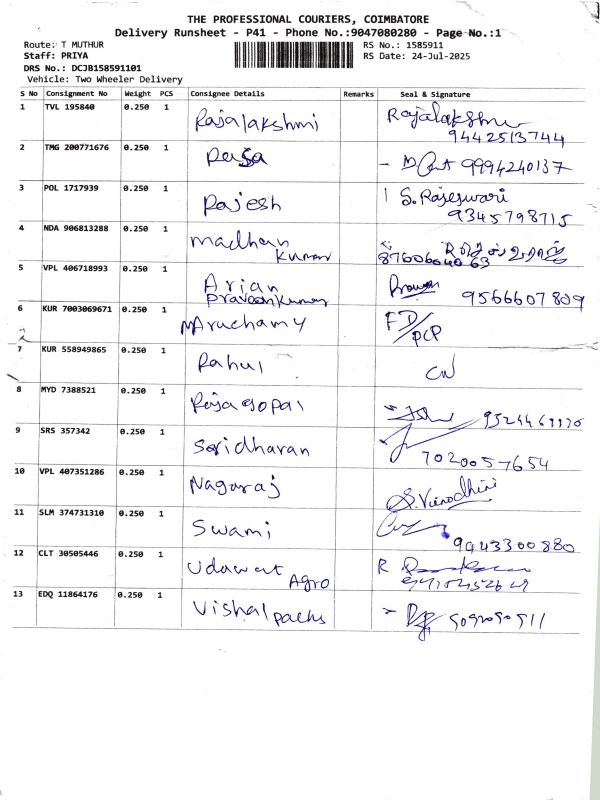 THE PROFESSIONAL COURIERS, COIMBATORE
Delivery Runsheet - P41 - Phone No.:9047080280 - Page No.:1
Route: T MUTHUR RS No.: 1585911
Staff: PRIYA RS Date: 24-Jul-2025
DRS No.: DCJB158591101
Vehicle: Two Wheeler Delivery
S No Consignment No Weight PCS Consignee Details Remarks Seal & Signature
1 TVL 195840 0.250 1 Rajalakshmi Rajalakshmi
9442513744
2 TMG 200771676 0.250 1 9994240137
3 POL 1717939 0.250 1 Rajesh S. Rajeswari
9345798715
4 NDA 906813288 0.250 1 madhan
kumar
5 VPL 406718993 0.250 1 Arian
Praveenkumar 9566607809
6 KUR 7003069671 0.250 1 Aruchamy FD/
PCP
7 KUR 558949865 0.250 1 Rahul
8 MYD 7388521 0.250 1 Rajagopal
9 SRS 357342 0.250 1 Soridharan
7020057654
10 VPL 407351286 0.250 1 Nagaraj S. Vinodhini
11 SLM 374731310 0.250 1 Swami
9943300880
12 CLT 30505446 0.250 1 Udawat
Agro
13 EDQ 11864176 0.250 1 Vishal packs